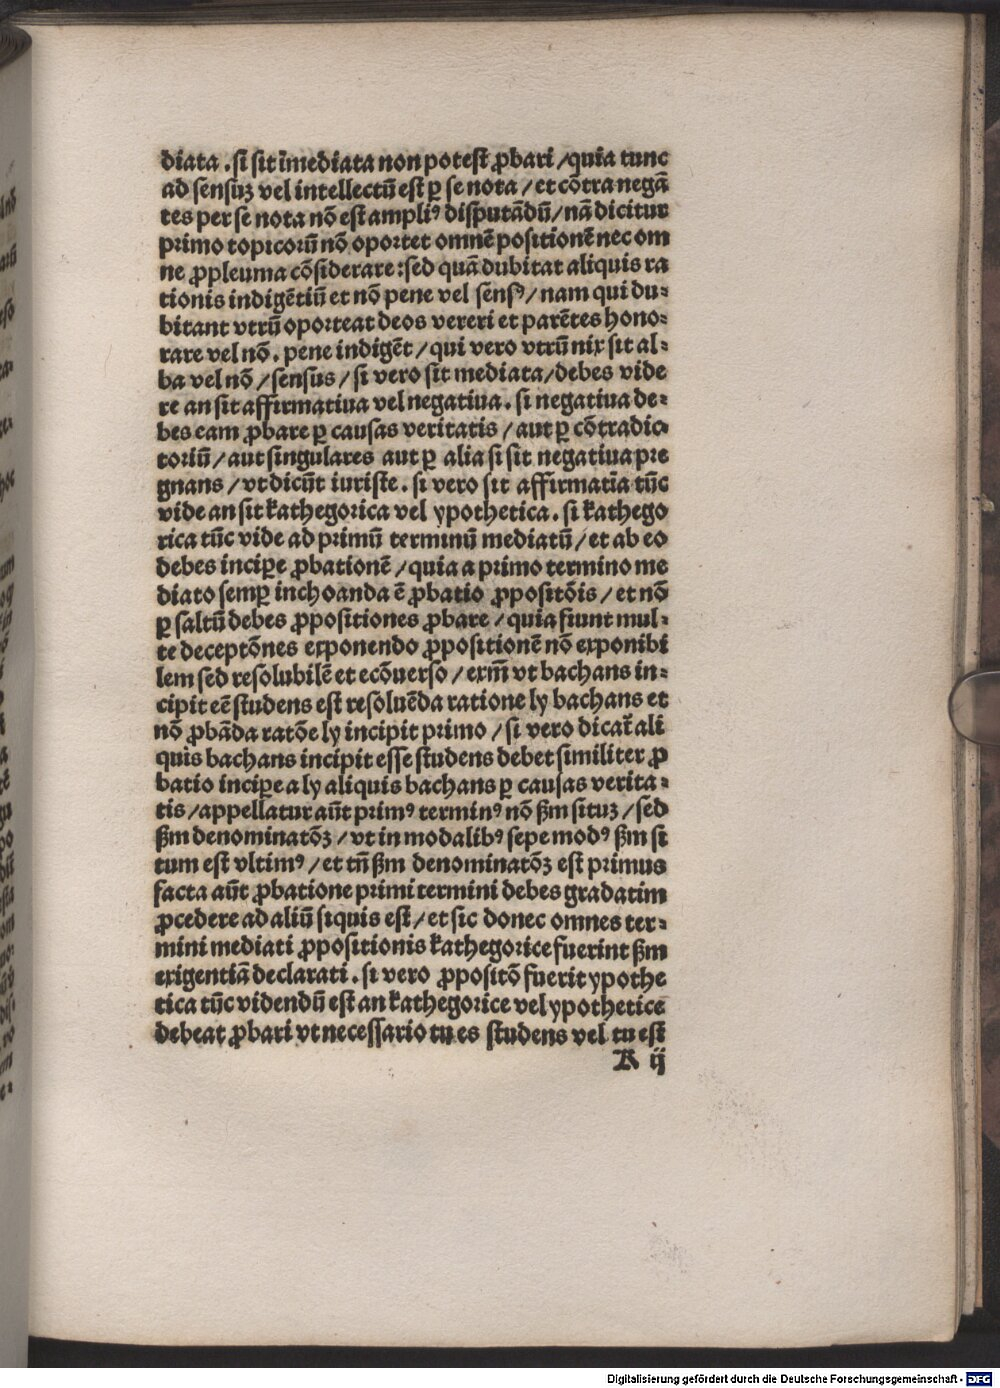 diata . si sit īmediata non potest ꝓbari / quia tunc
ad sensuꝫ vel intellectū est ꝑ se nota / et cōtra negā
tes per se nota nō est ampliꝰ disputādū / nā dicitur
primo topicorū nō oportet omnē positionē nec om
ne ꝓpleuma cōsiderare : sed quā dubitat aliquis ra
tionis indigētiū et nō pene vel sensꝰ / nam qui du⸗
bitant vtrū oporteat deos vereri et parētes hono⸗
rare vel nō . pene indigēt / qui vero vtrū nix sit al⸗
ba vel nō / sensus / si vero sit mediata / debes vide
re an sit affirmatiua vel negatiua . si negatiua de⸗
bes eam ꝓbare ꝑ causas veritatis / aut ꝑ cōtradic
toriū / aut singulares aut ꝑ alia si sit negatiua pre
gnans / vt dicūt iuriste . si vero sit affirmatīa tūc
vide an sit kathegorica vel ypothetica . si kathego
rica tūc vide ad primū terminū mediatū / et ab eo
debes inciꝑe ꝓbationē / quia a primo termino me
diato semꝑ inchoanda ē ꝓbatio ꝓpositōis / et nō
ꝑ saltū debes ꝓpositiones ꝓbare / quia fiunt mul⸗
te deceptōnes exponendo ꝓpositionē nō exponibi
lem sed resolubilē et ecōuerso / exm̄ vt bachans in⸗
cipit eē studens est resoluēda ratione ly bachans et
nō ꝓbāda ratōe ly incipit primo / si vero dicat̄ ali
quis bachans incipit esse studens debet similiter ꝓ
batio inciꝑe a ly aliquis bachans ꝑ causas verita⸗
tis / appellatur aūt primꝰ terminꝰ nō ẜm situꝫ / sed
ẜm denominatōꝫ / vt in modalibꝰ sepe modꝰ ẜm si
tum est vltimꝰ / et tn̄ ẜm denominatōꝫ est primus
facta aūt ꝓbatione primi termini debes gradatim
ꝓcedere ad aliū siquis est / et sic donec omnes ter⸗
mini mediati ꝓpositionis kathegorice fuerint ẜm
exigentiā declarati . si vero ꝓpositō fuerit ypothe
tica tūc videndū est an kathegorice vel ypothetice
debeat ꝓbari vt necessario tu es studens vel tu est
K ij
Digitalisierung gefördert durch die Deutsche Forschungsgemeinschaft - DFG